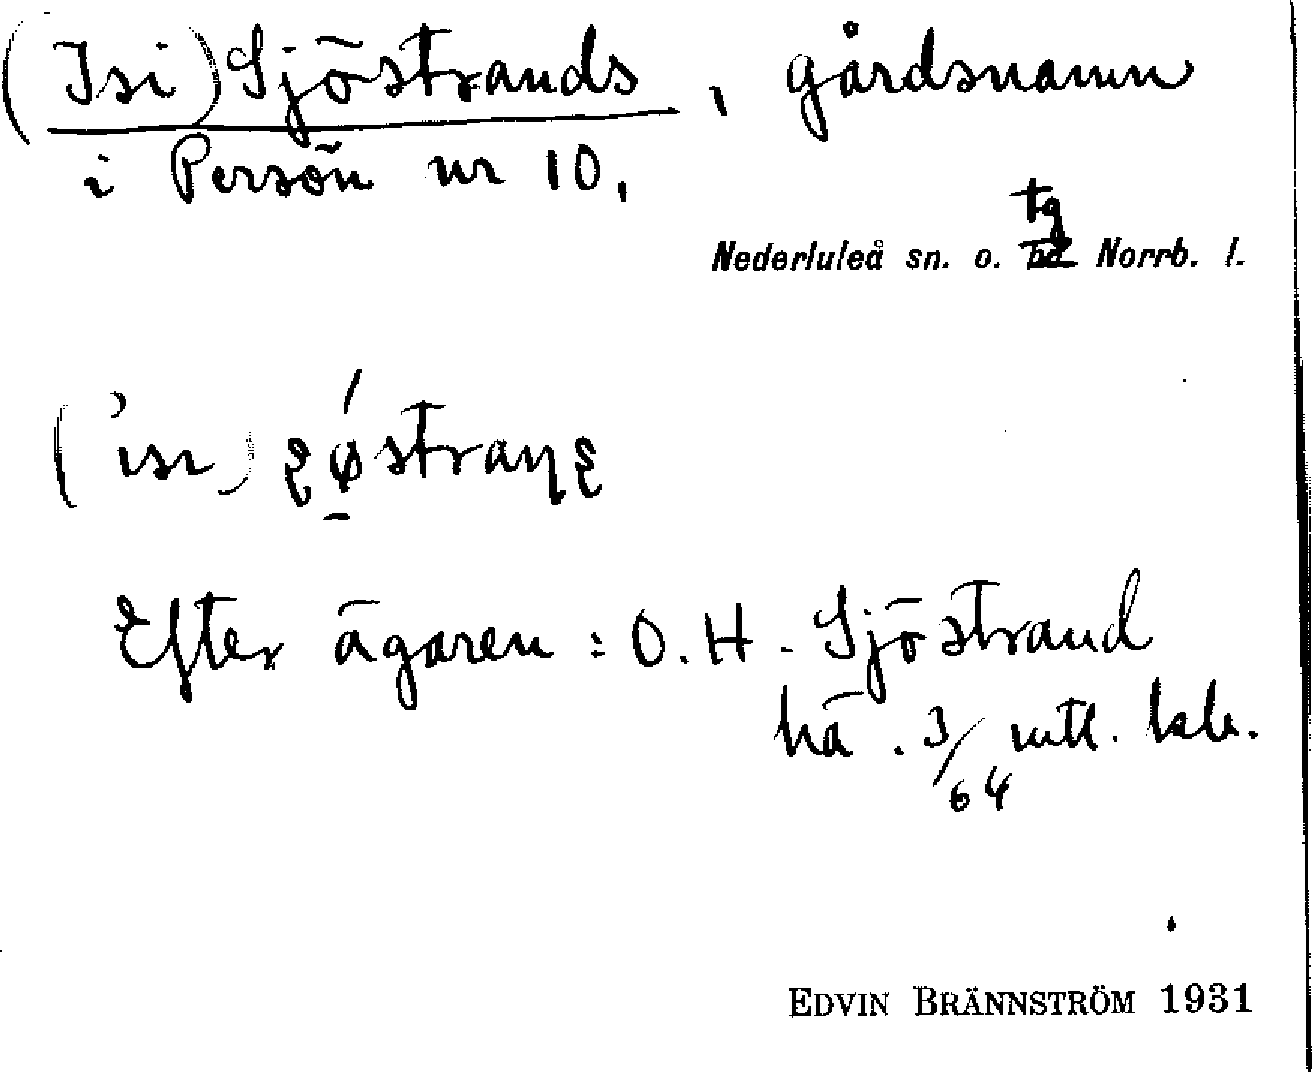 (Isi) Sjöstrands, gårdsnamn
i Persön nr 10,
tg
Nederluleå sn. o. hd Norrb. l.
Efter ägaren: O. H. Sjöstrand
hä. 3/64 mtl. kr.
EDVIN BRÄNNSTRÖM 1931